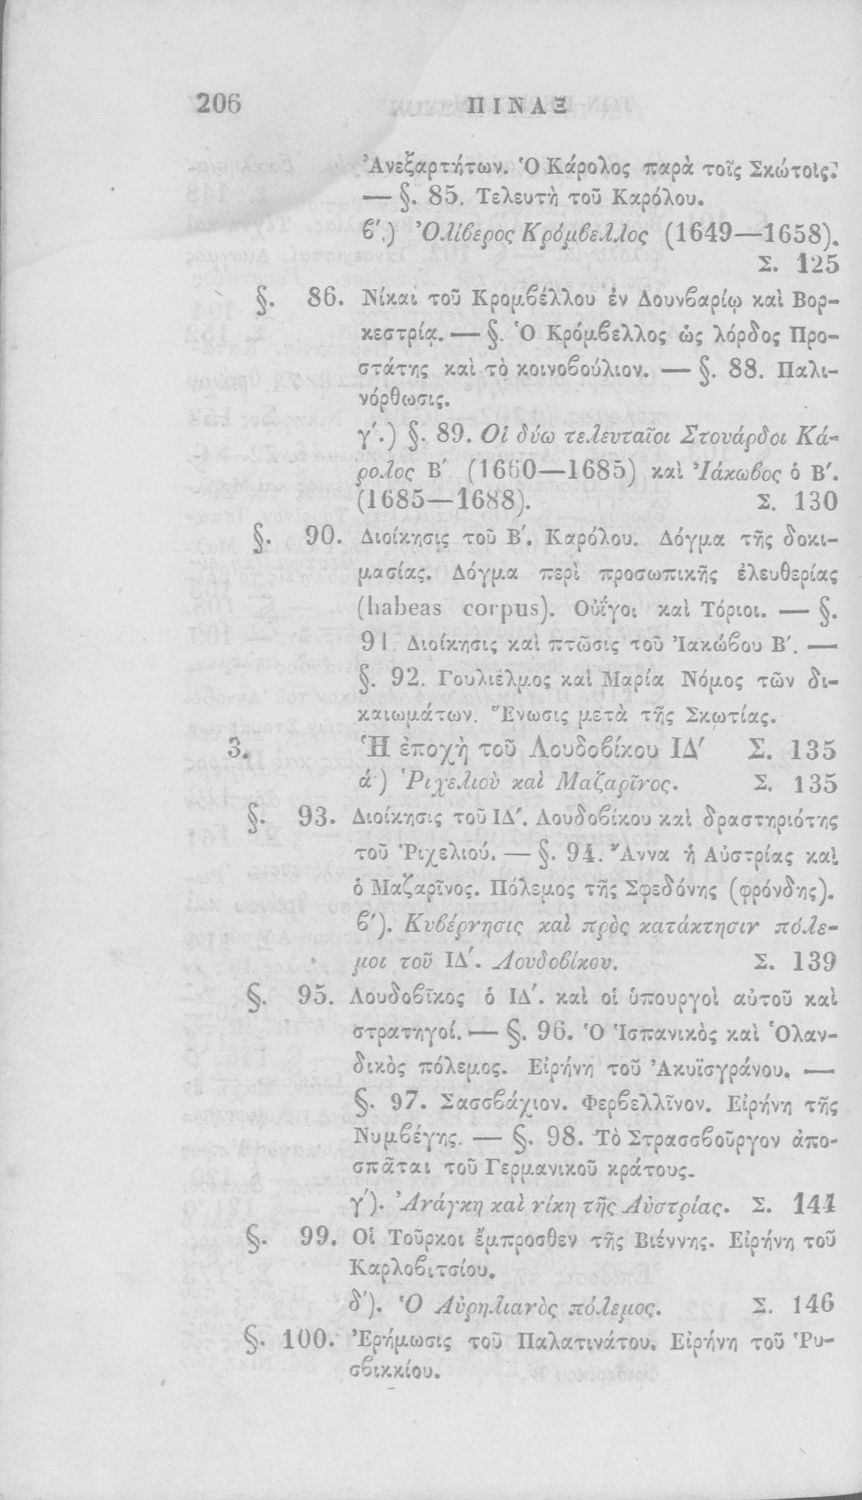 206 ΠΙΝΑΞ
Ἀνεξαρτήτων. Ὁ Κάρολος παρὰ τοῖς Σκώτοις.
— §. 85. Τελευτὴ τοῦ Καρόλου.
ϐ′.) Ὀλίϐερος Κρόμϐελλος (1649—1658).
Σ. 125
§. 86. Νίκαι τοῦ Κρομϐέλλου ἐν Δουνϐαρίῳ καὶ Βορ-
κεστρίᾳ. — §. Ὁ Κρόμϐελλος ὡς λόρδος Προ-
στάτης καὶ τὸ κοινοϐούλιον. — §. 88. Παλι-
νόρθωσις.
γ′.) §. 89. Οἱ δύω τελευταῖοι Στουάρδοι Κά-
ρολος Β′ (1660—1685) καὶ Ἰάκωϐος ὁ Β′.
(1685—1688). Σ. 130
§. 90. Διοίκησις τοῦ Β′. Καρόλου. Δόγμα τῆς δοκι-
μασίας. Δόγμα περὶ προσωπικῆς ἐλευθερίας
(habeas corpus). Οὐΐγοι καὶ Τόριοι. — §.
91 Διοίκησις καὶ πτῶσις τοῦ Ἰακώϐου Β′. —
§. 92. Γουλιέλμος καὶ Μαρία Νόμος τῶν δι-
καιωμάτων. Ἕνωσις μετὰ τῆς Σκωτίας.
3. Ἡ ἐποχὴ τοῦ Λουδοϐίκου ΙΔ′ Σ. 135
ά) Ῥιχελιοὺ καὶ Μαζαρῖνος. Σ. 135
§. 93. Διοίκησις τοῦ ΙΔ′. Λουδοϐίκου καὶ δραστηριότης
τοῦ Ῥιχελιού. — §. 94. Ἄννα ἡ Αὐστρίας καὶ
ὁ Μαζαρῖνος. Πόλεμος τῆς Σφεδόνης (φρόνδης).
ϐ′). Κυϐέρνησις καὶ πρὸς κατάκτησιν πόλε-
μοι τοῦ ΙΔ′. Λουδοϐίκου. Σ. 139
§. 95. Λουδοϐῖκος ὁ ΙΔ′. καὶ οἱ ὑπουργοὶ αὐτοῦ καὶ
στρατηγοί. — §. 96. Ὁ Ἱσπανικὸς καὶ Ὁλαν-
δικὸς πόλεμος. Εἰρήνη τοῦ Ἀκυϊσγράνου. —
§. 97. Σασσϐάχιον. Φερϐελλῖνον. Εἰρήνη τῆς
Νυμϐέγης. — §. 98. Τὸ Στρασσϐοῦργον ἀπο-
σπᾶται τοῦ Γερμανικοῦ κράτους.
γ′). Ἀνάγκη καὶ νίκη τῆς Αὐστρίας. Σ. 144
§. 99. Οἱ Τοῦρκοι ἔμπροσθεν τῆς Βιέννης. Εἰρήνη τοῦ
Καρλοϐιτσίου.
δ′). Ὁ Αὐρηλιανὸς πόλεμος. Σ. 146
§. 100. Ἐρήμωσις τοῦ Παλατινάτου. Εἰρήνη τοῦ Ῥυ-
σϐικκίου.